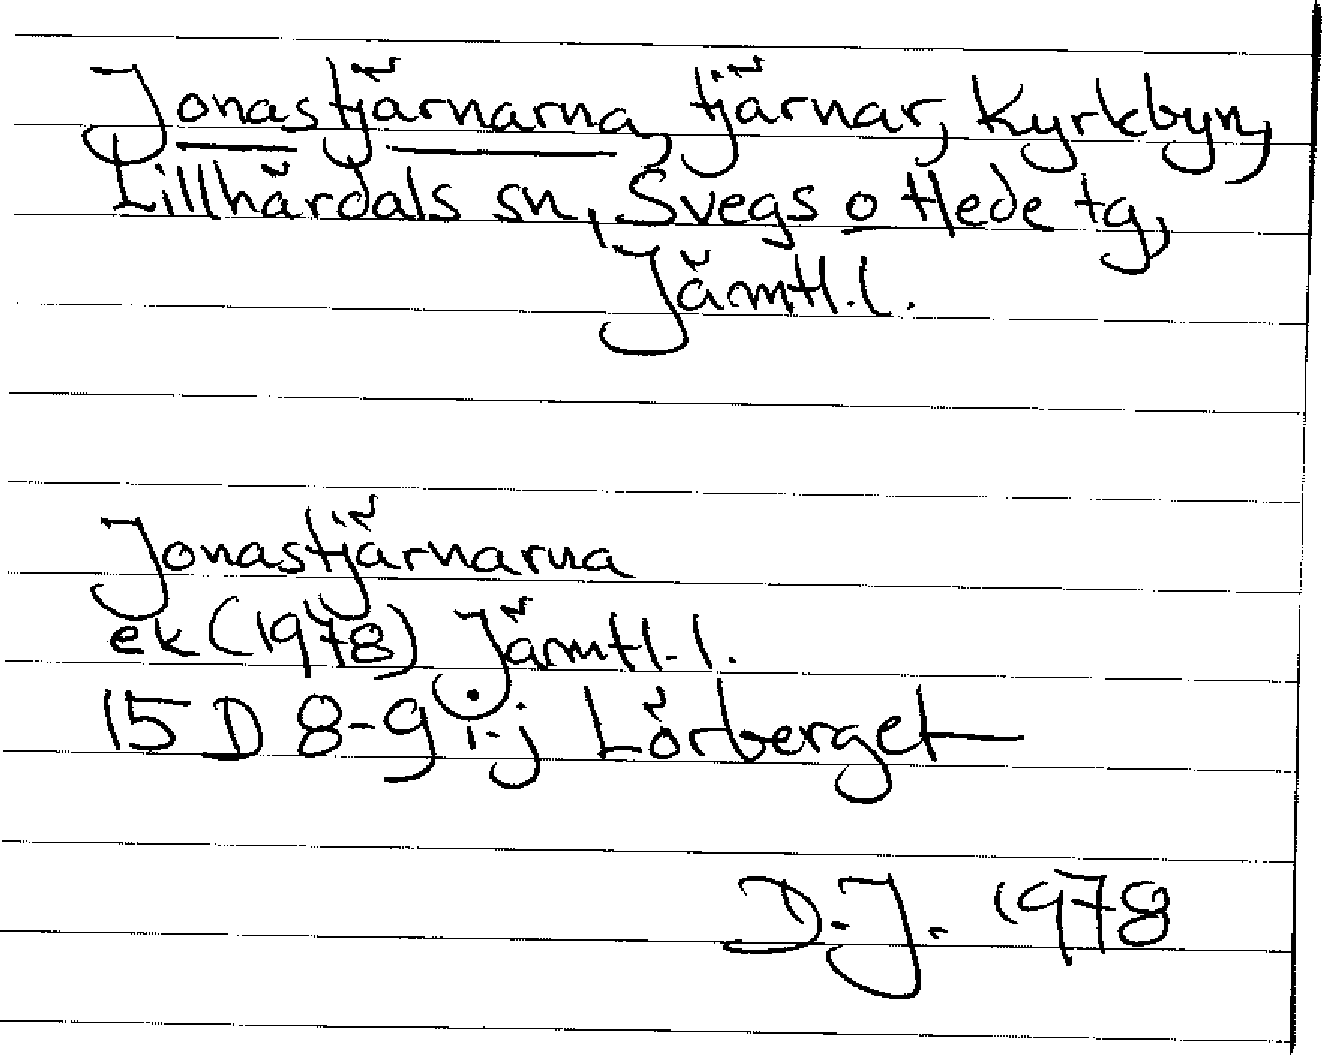 Jonastjärnarna, tjärnar, Kyrkbyn,
Lillhärdals sn, Svegs o Hede tg,
Jämtl.l.
Jonastjärnarna
ek (1978) Jämtl.l.
15 D 8-9 i-j Lörberget
D.J. 1978